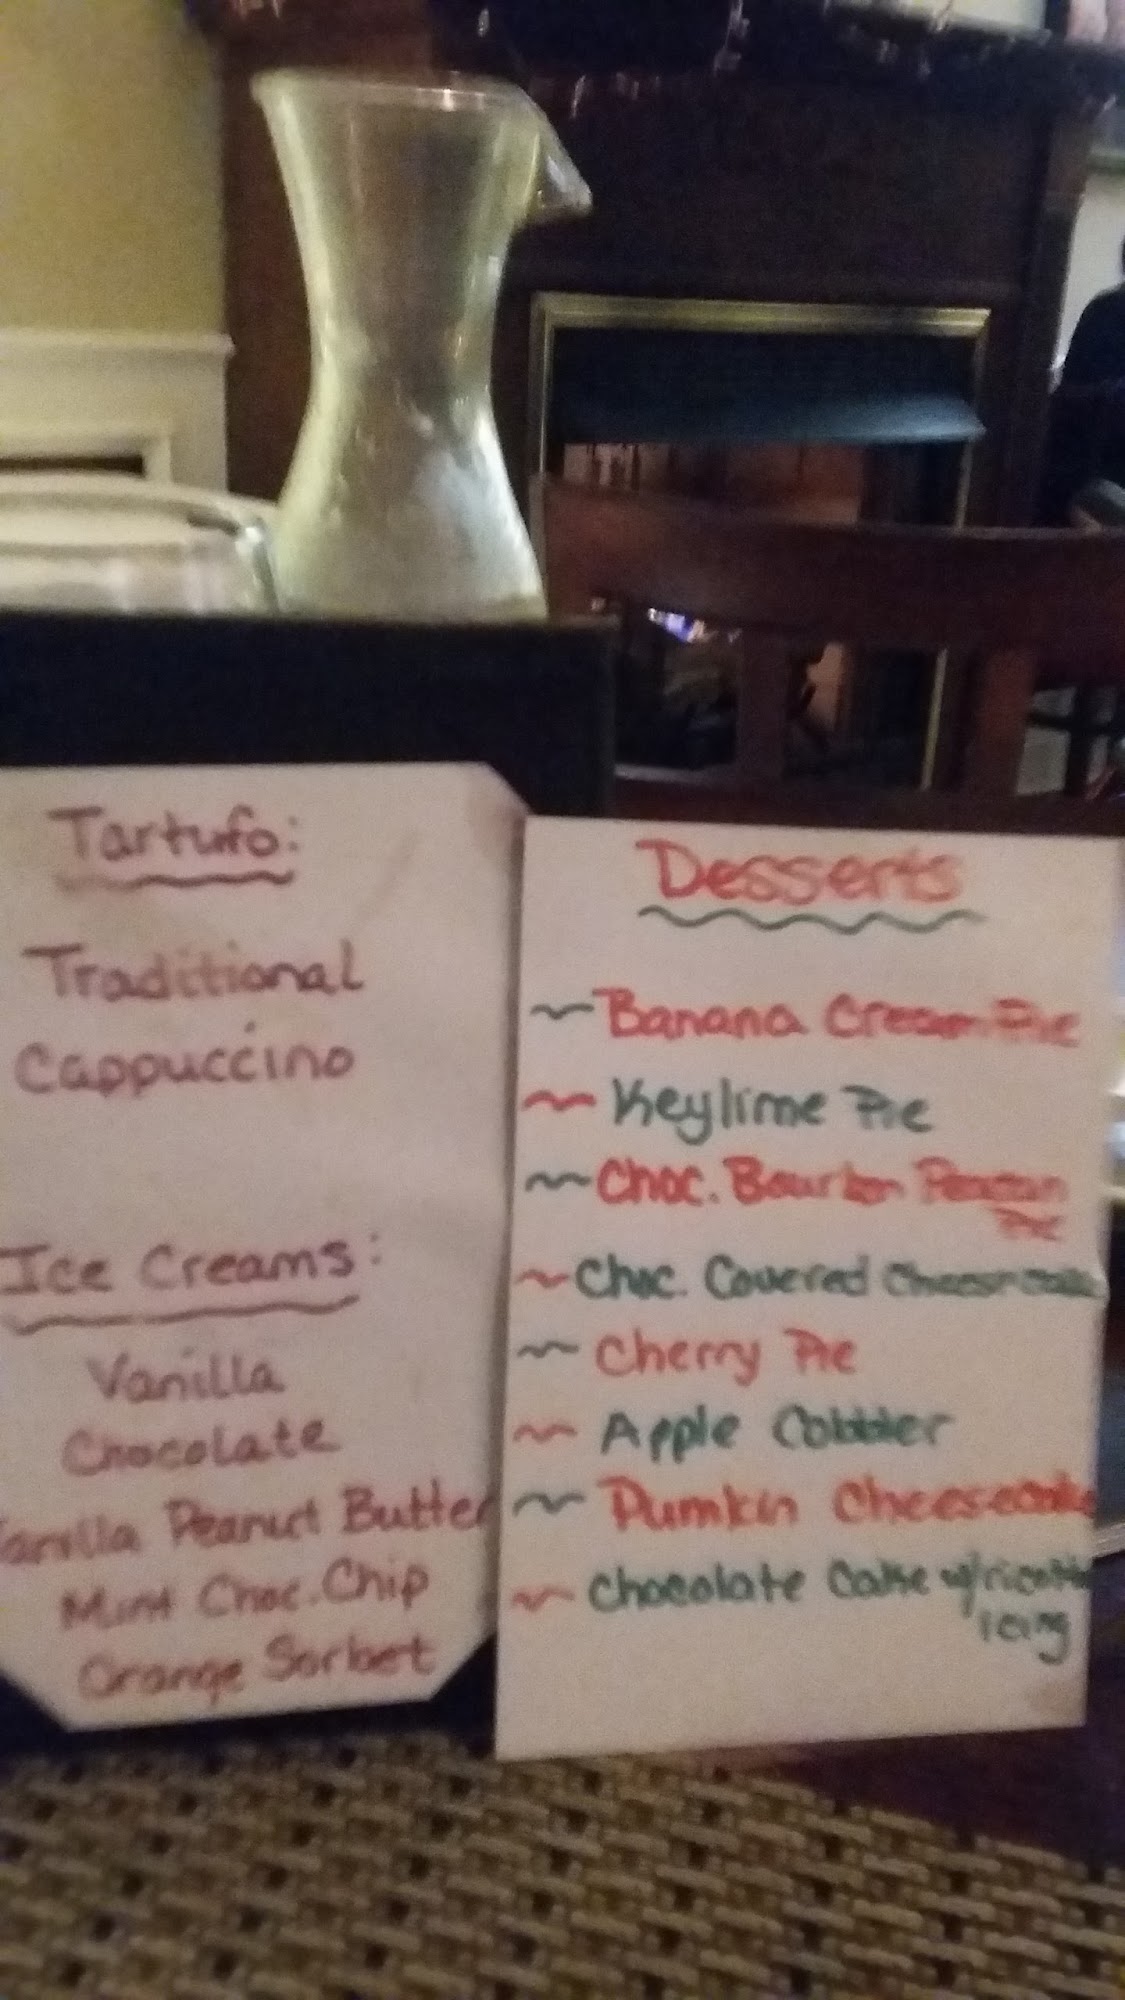 Tartufo:
Traditional
Cappuccino
Ice Creams:
Vanilla
Chocolate
Vanilla Peanut Butter
Mint Choc. Chip
Orange Sorbet
Desserts
~Banana Cream Pie
~Keylime Pie
~Choc. Bourbon
Pie
~Choc. Covered Cheesecake
~Cherry Pie
~Apple Cobbler
~Pumkin Cheesecake
~Chocolate Cake w/ricotta
icing